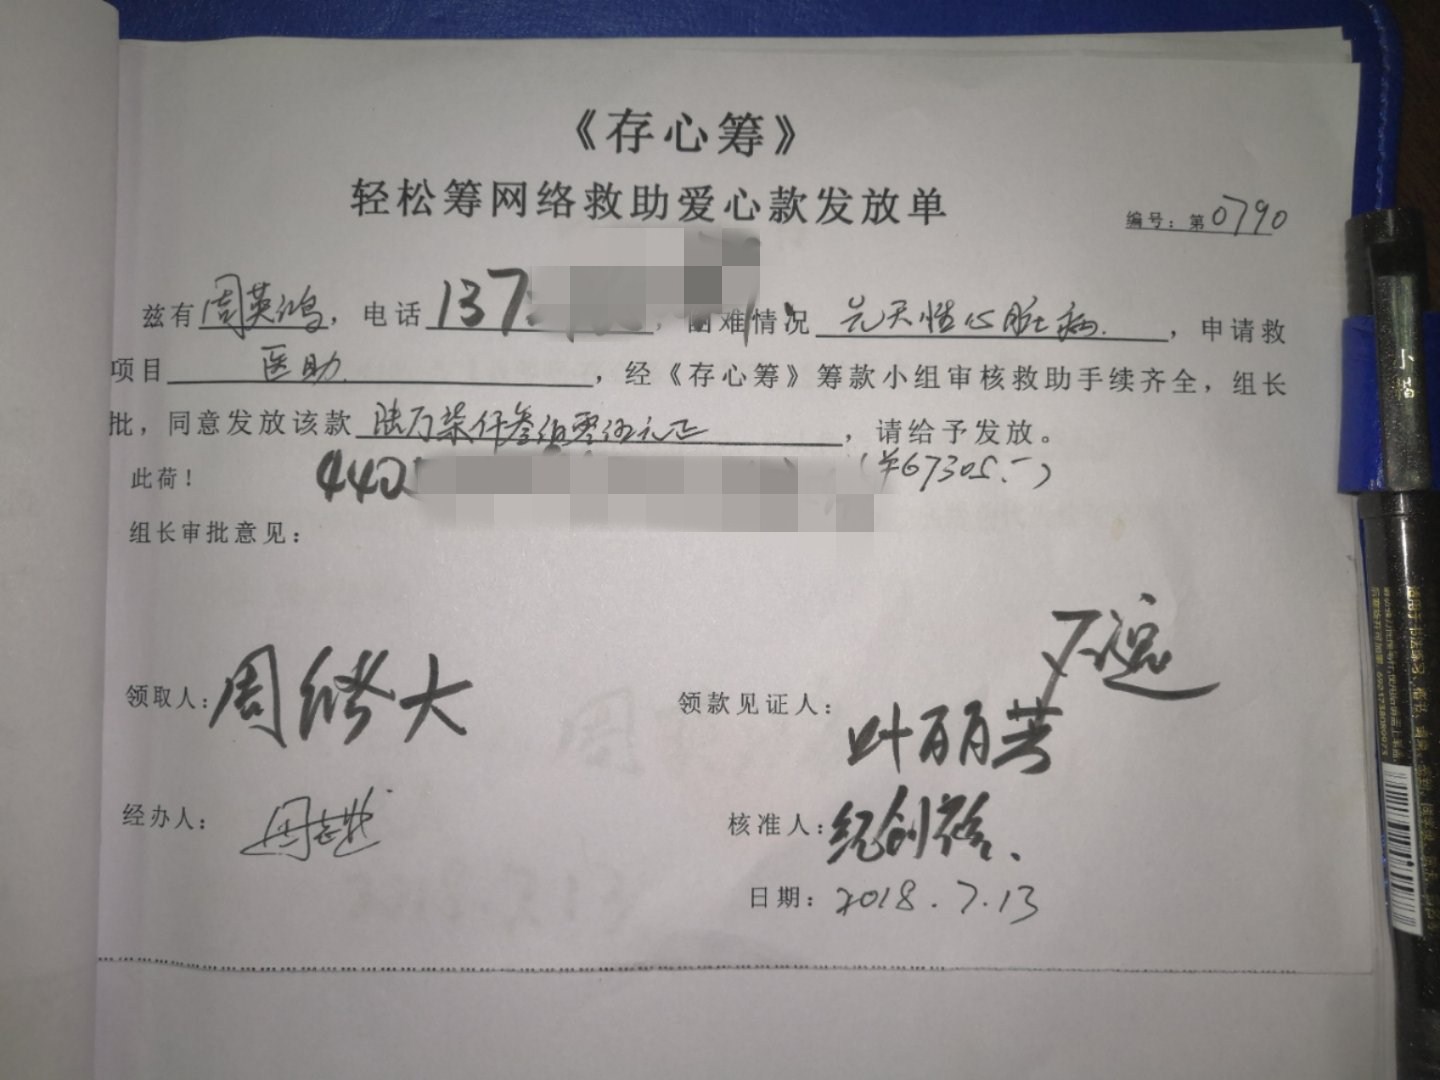 《存心筹》
轻松筹网络救助爱心款发放单
编号：第0790
兹有周英鸿，电话137，困难情况先天性心脏病.，申请救
项目医助.，经《存心筹》筹款小组审核救助手续齐全，组长
批，同意发放该款陆万柒仟叁佰零伍元正，请给予发放。
此荷！ 440 (¥67305.一)
组长审批意见：
领取人：周修大 领款见证人：
叶丽芳
经办人： 核准人：纪创裕.
日期：2018.7.13